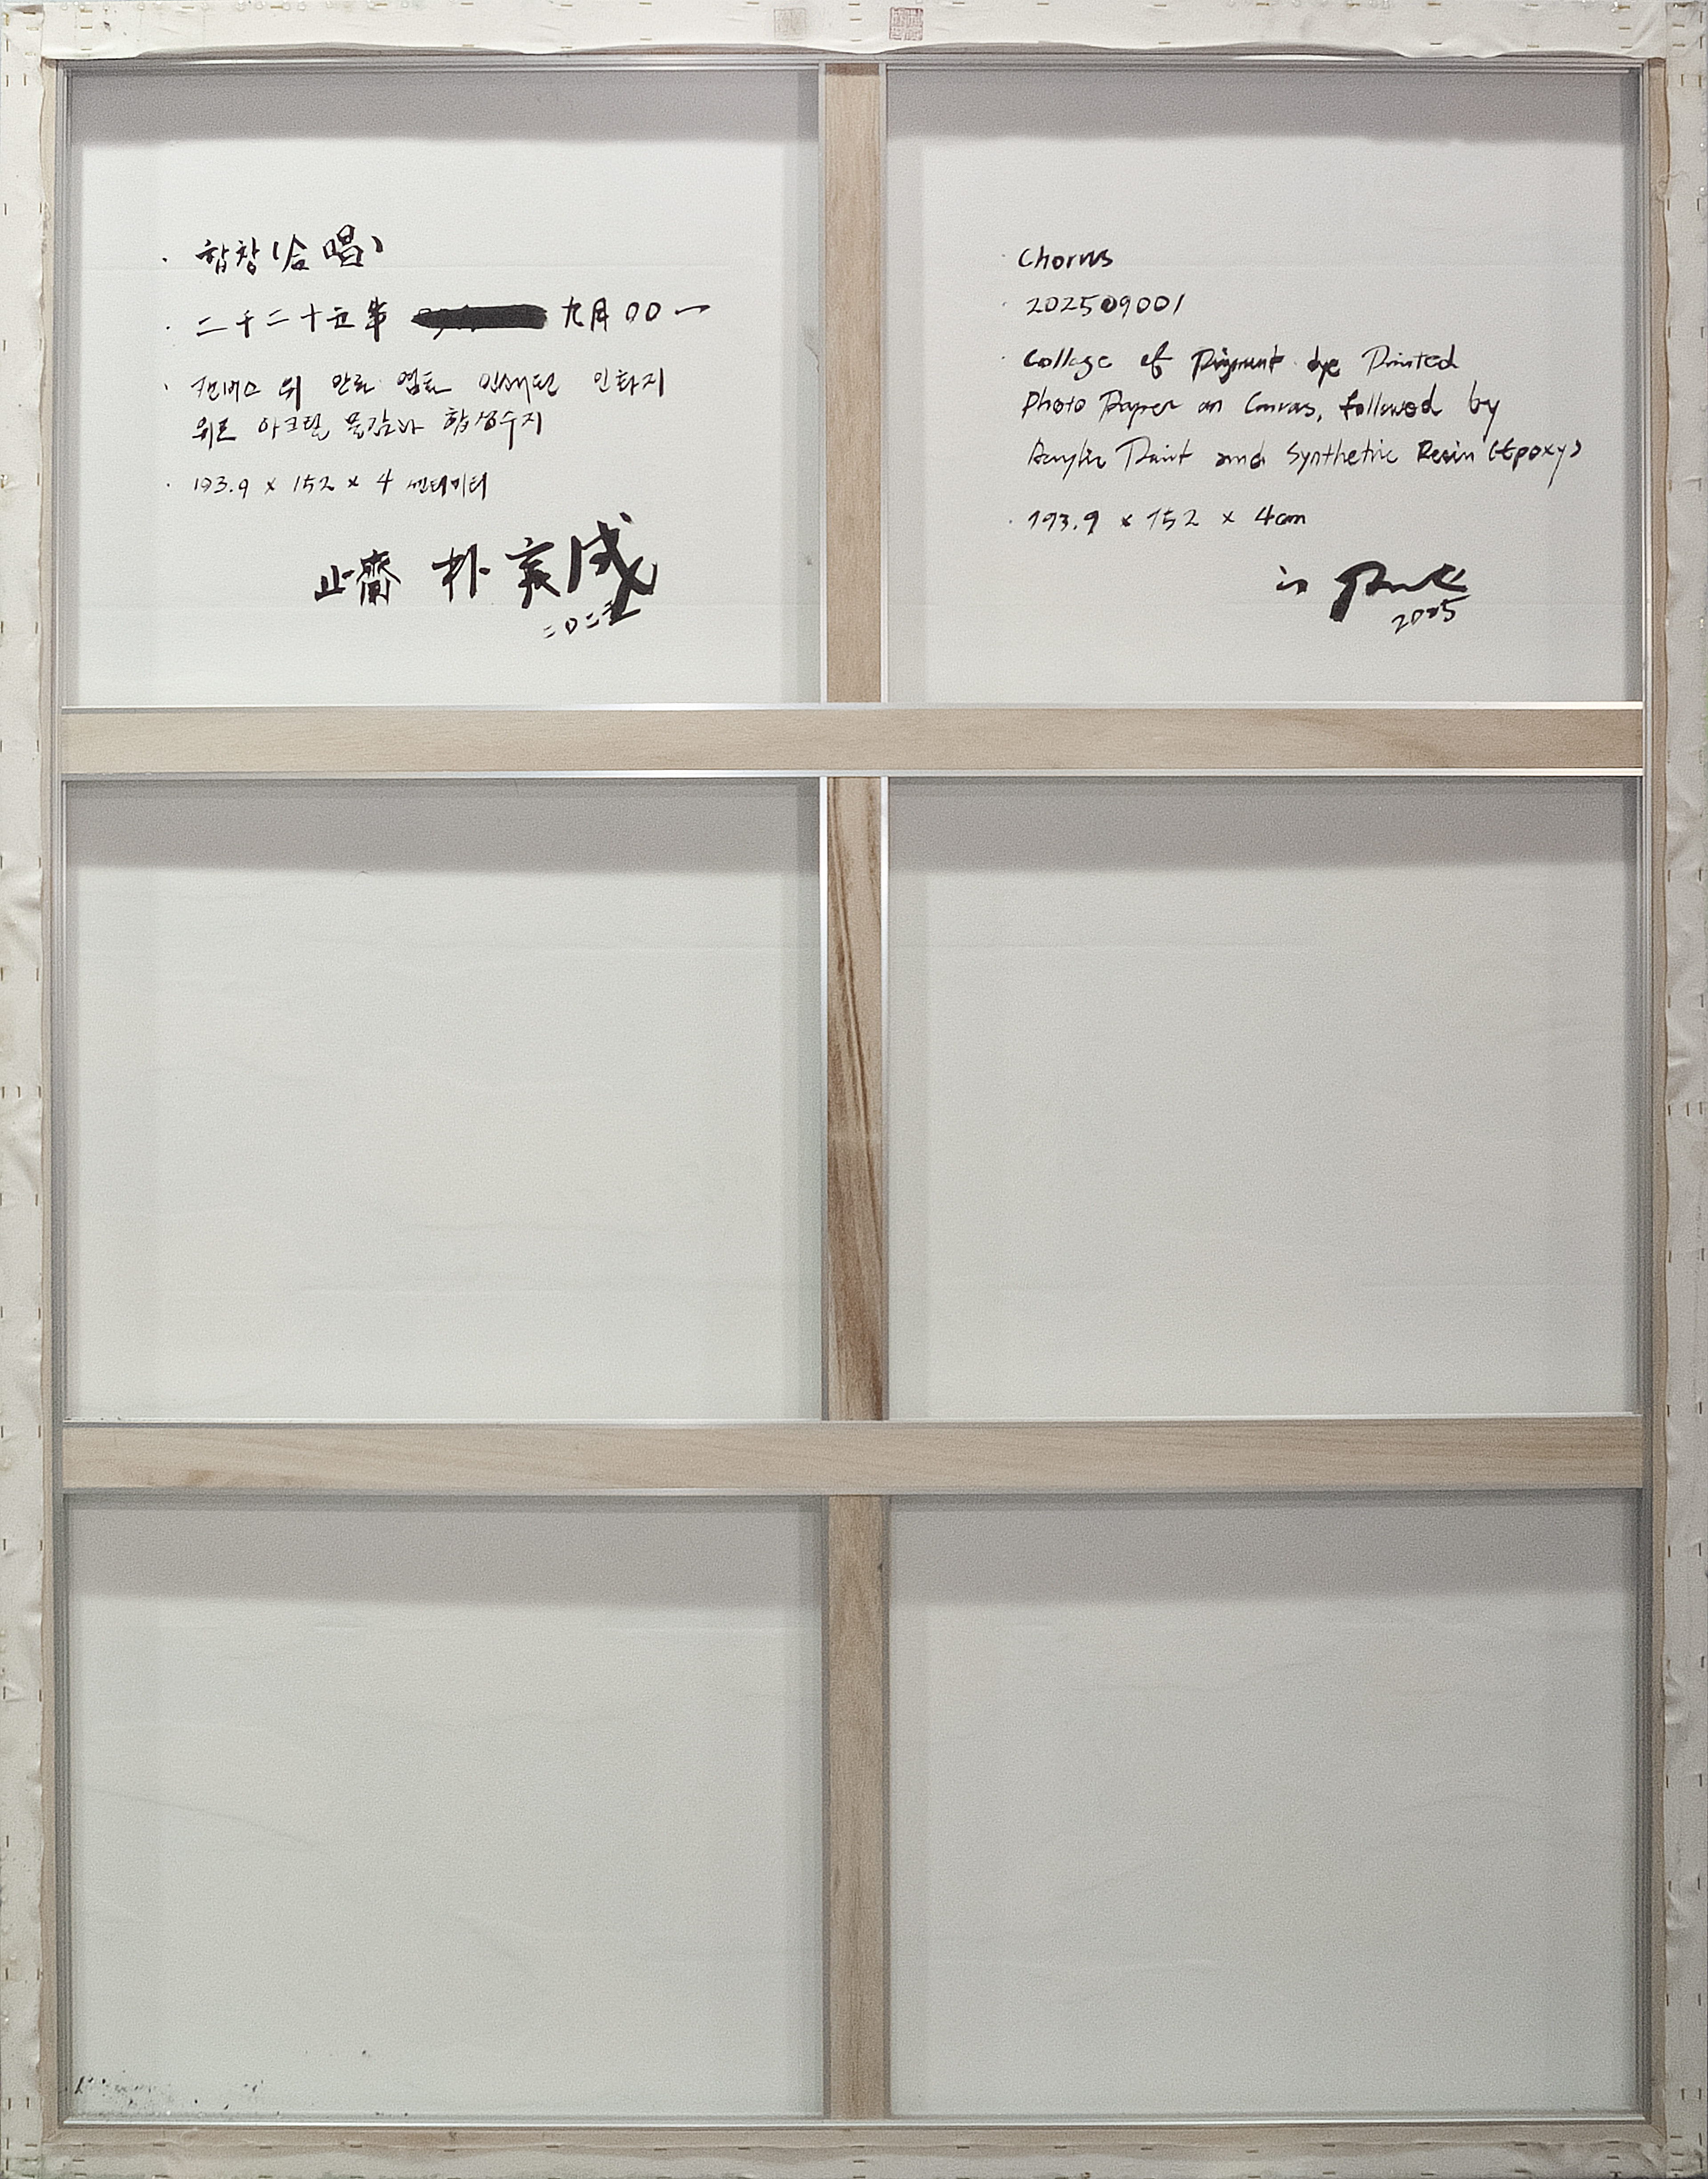 · 합창(合唱)
· 二千二十五年 九月00一
· 캔버스 위 안료 염료 인쇄된 인화지
위로 아크릴 물감과 합성수지
· 193.9 x 152 x 4 센티미터
止齋 朴 亥成
二〇二五
· Chorus
· 202509001
· Collage of Pigment dye Printed
Photo Paper on Canvas, followed by
Acrylic Paint and Synthetic Resin (Epoxy)
· 193.9 x 152 x 4cm
Park
2025